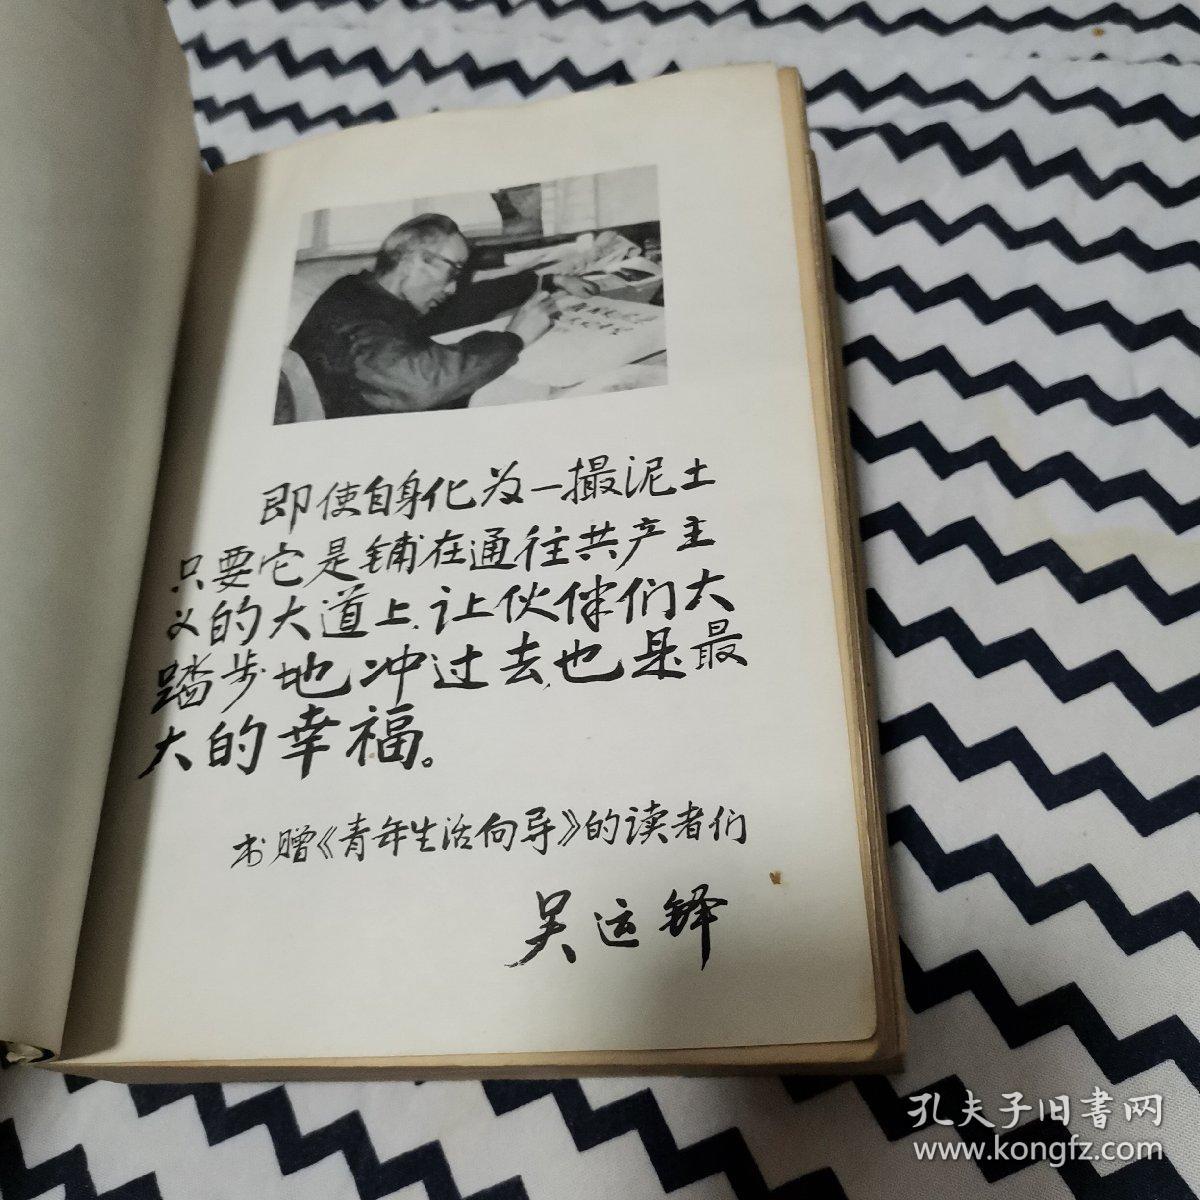 即使自身化为一撮泥土
只要它是铺在通往共产主
义的大道上,让伙伴们大
踏步地冲过去,也是最
大的幸福。
书赠《青年生活向导》的读者们
吴运铎
孔夫子旧書网
www.kongfz.com